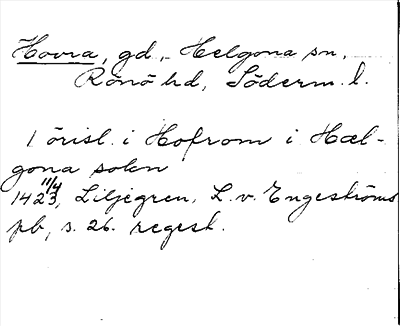 Hovra, gd., Helgona sn,
Rönö hd, Söderm. l.
1 örisl. i Hofrom i Hæl-
gona sokn
1423 11/4, Liljegren, L. v. Engeströms
pb, s. 26. regest.